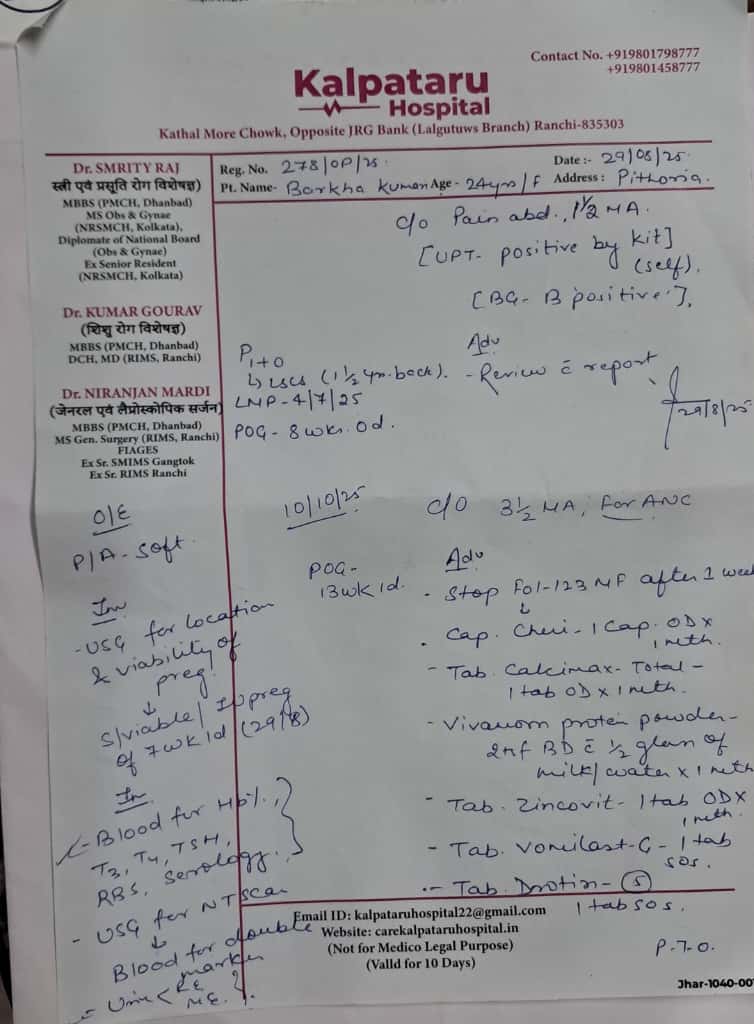 Contact No. +919801798777
+919801458777
Kalpataru
Hospital
Kathal More Chowk, Opposite JRG Bank (Lalgutuws Branch) Ranchi-835303
Dr. SMRITY RAJ
स्त्री एवं प्रसूति रोग विशेषज्ञ)
MBBS (PMCH, Dhanbad)
MS Obs & Gynae
(NRSMCH, Kolkata),
Diplomate of National Board
(Obs & Gynae)
Ex Senior Resident
(NRSMCH, Kolkata)
Dr. KUMAR GOURAV
(शिशु रोग विशेषज्ञ)
MBBS (PMCH, Dhanbad)
DCH, MD (RIMS, Ranchi)
Dr. NIRANJAN MARDI
(जेनरल एवं लैप्रोस्कोपिक सर्जन)
MBBS (PMCH, Dhanbad)
MS Gen. Surgery (RIMS, Ranchi)
FIAGES
Ex Sr. SMIMS Gangtok
Ex Sr. RIMS Ranchi
Reg. No. 278/OP/25. Date :- 29/08/25.
Pt. Name- Barkha Kumari Age - 24yrs/F Address : Pithoria.
c/o Pain abd., 1½ MA.
[UPT- positive by kit]
(self).
[BG- B positive],
P1+0
↳ LSCS (1½ yr. back).
LMP - 4/7/25
POG- 8 wks. 0d.
Adv
- Review c̄ report
29/8/25
O/E
P/A - soft.
Inv
- USG for location
& viability of
preg.
↓
S/viable/IUpreg
of 7wk1d (29/8)
In
- Blood for Hb%,
T3, T4, TSH,
RBS, Serology.
- USG for NT scan
↓
Blood for double
marker
- Urine < RE
10/10/25
POG-
13wk1d.
c/o 3½ MA, for ANC
Adv
- Stop Fol-123 MF after 1 week
↓
. Cap. Cheri - 1 Cap. OD x
1 mth.
- Tab. Calcimax- Total -
1 tab OD x 1 mth.
- protein powder -
2tsf BD c̄ ½ glass of
milk/water x 1 mth
- Tab. Zincovit - 1 tab OD x
1 mth.
- Tab. - 1 tab
SOS.
- Tab. Drotin - (5)
1 tab SOS.
P.T.O.
Email ID: kalpataruhospital22@gmail.com
Website: carekalpataruhospital.in
(Not for Medico Legal Purpose)
(Valld for 10 Days)
Jhar-1040-001